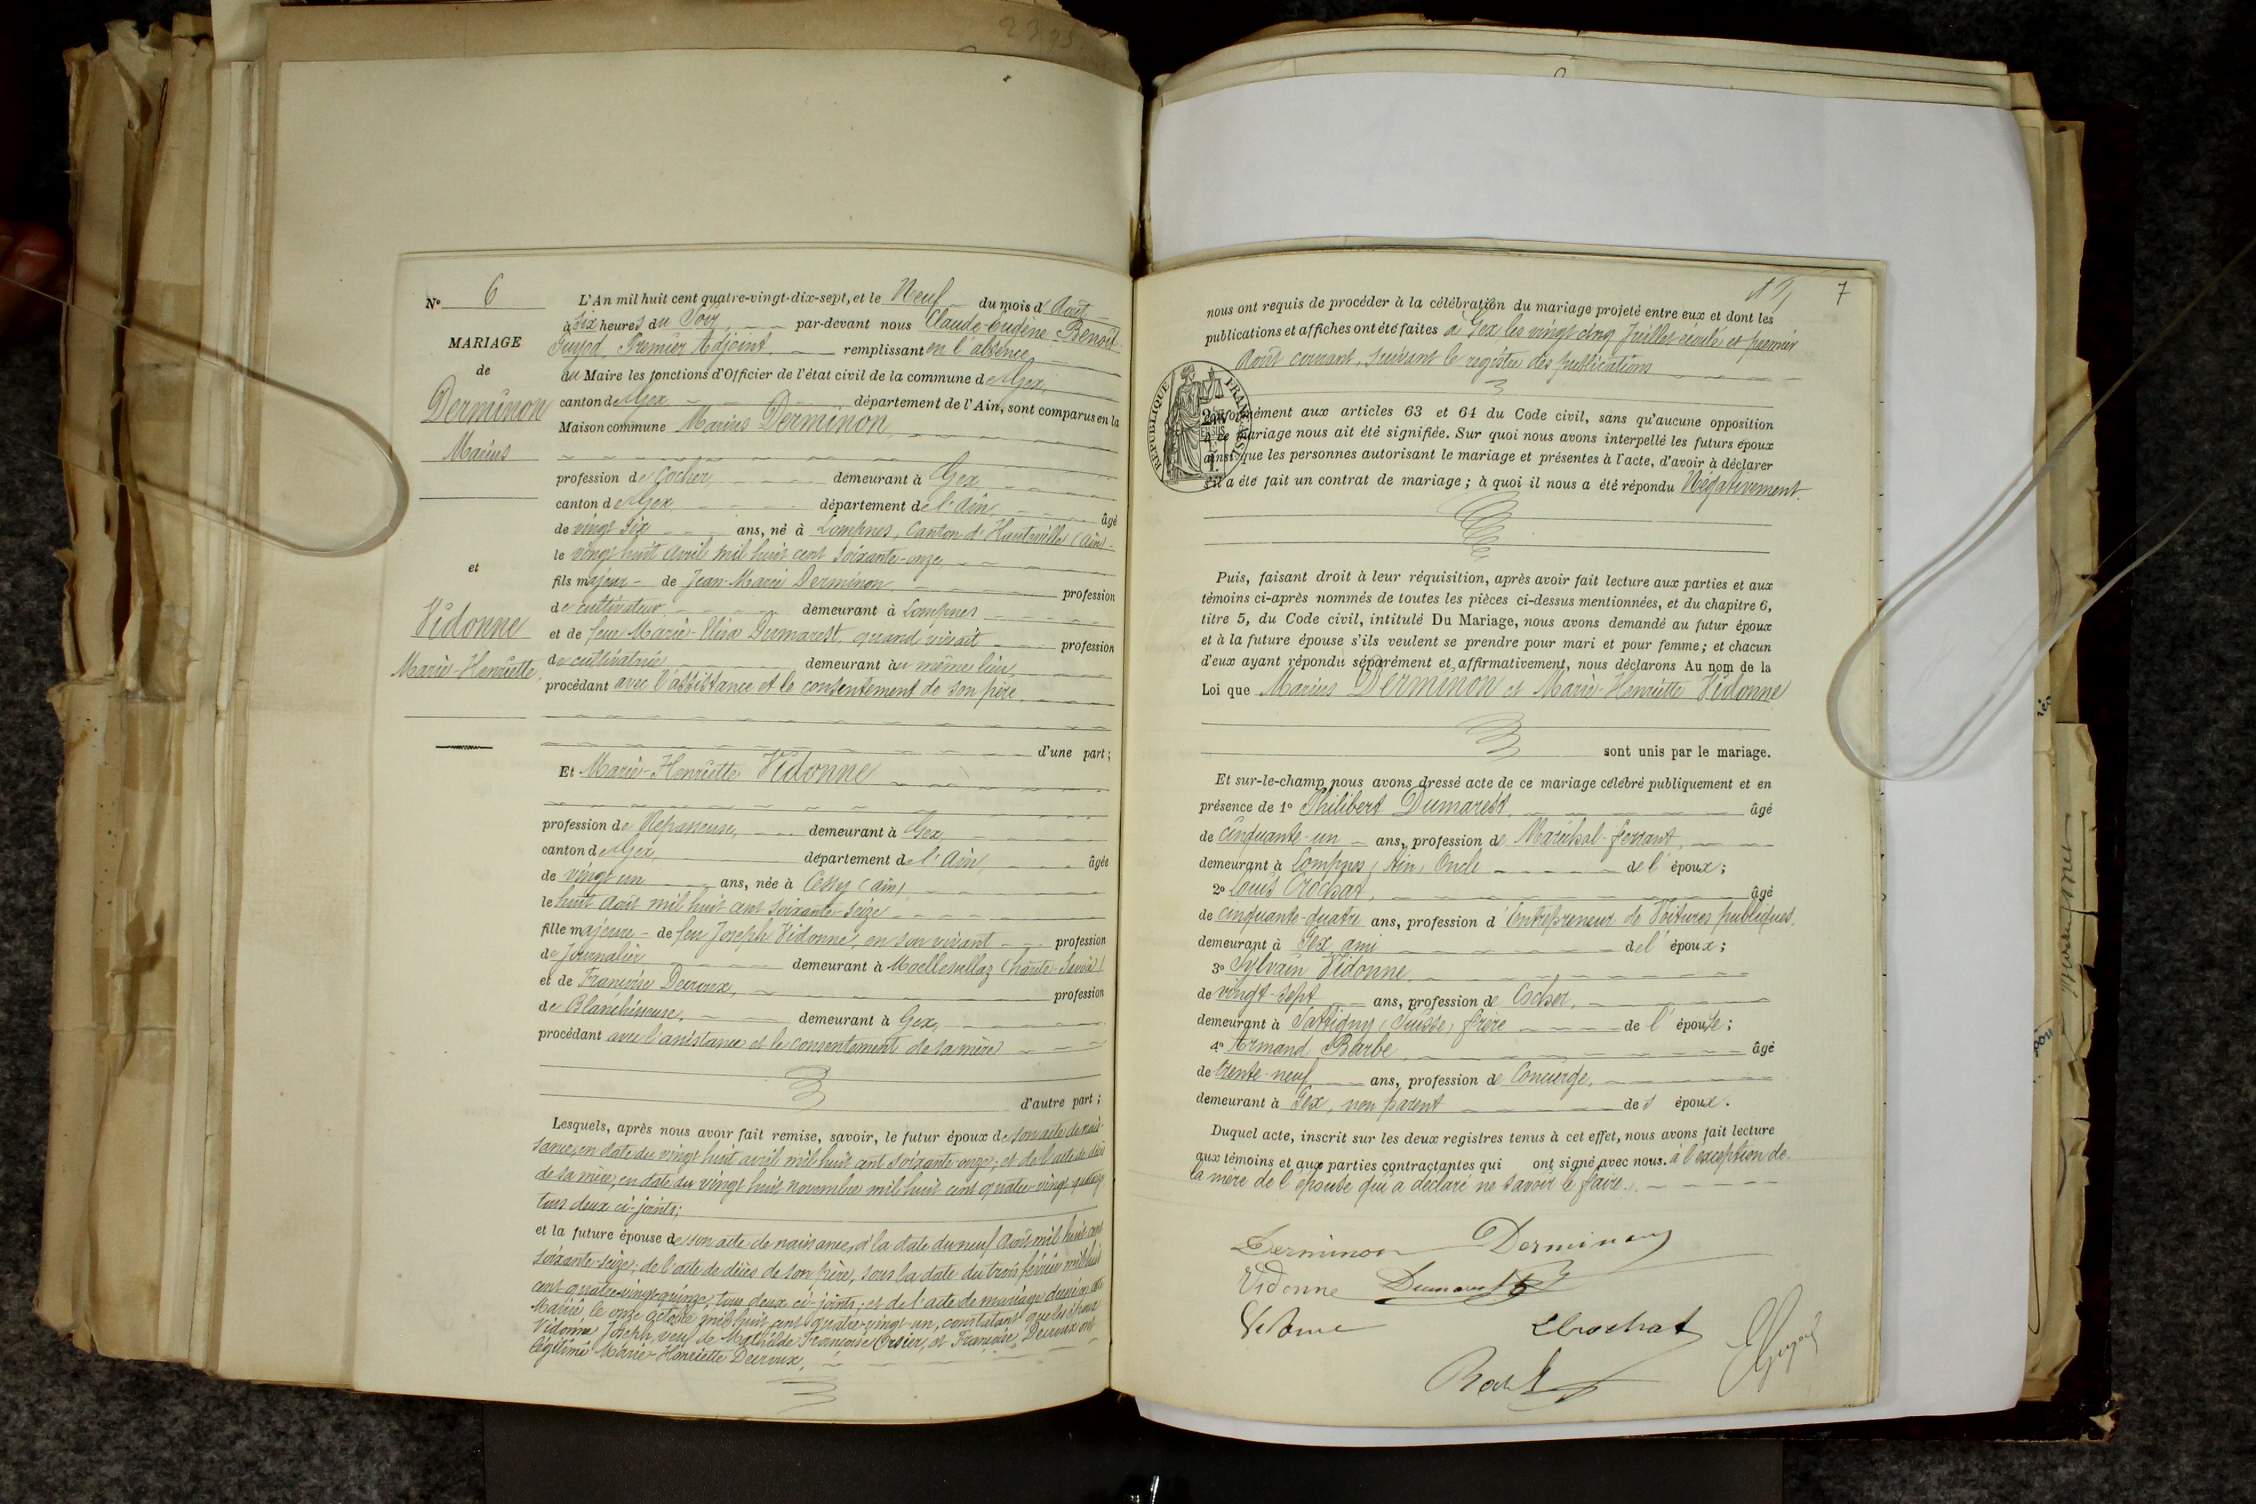 N° 6
MARIAGE
de
Derminon
Marius
et
Vidonne
Marie-Henriette
L'An mil huit cent quatre-vingt-dix-sept, et le Neuf du mois d'Août
à Six heures du Soir, par-devant nous Claude-Eugène Benoit
Premier Adjoint remplissant en l'absence
du Maire les fonctions d'Officier de l'état civil de la commune de Gex,
canton de Gex département de l'Ain, sont comparus en la
Maison commune Marius Derminon
profession de Cocher demeurant à Gex
canton de Gex département de l'Ain âgé
de vingt six ans, né à Lompnes, Canton d'Hauteville (Ain)
le vingt huit avril mil huit cent soixante-onze
fils majeur de Jean-Marie Derminon profession
de cultivateur demeurant à Lompnes
et de feue Marie-Elisa Dumarest, quand vivait profession
de cultivatrice demeurant au même lieu,
procédant avec l'assistance et le consentement de son père
d'une part;
Et Marie-Henriette Vidonne
profession de Repasseuse, demeurant à Gex,
canton de Gex, département de l'Ain, âgée
de vingt un ans, née à Cessy (Ain)
le huit Août mil huit cent soixante-seize
fille majeure de feu Joseph Vidonne, en son vivant profession
de Journalier demeurant à Moellesullaz (haute-Savoie)
et de Françoise Decroux, profession
de Blanchisseuse, demeurant à Gex,
procédant avec l'assistance et le consentement de sa mère
d'autre part;
Lesquels, après nous avoir fait remise, savoir, le futur époux de son acte de nais-
sance, en date du vingt huit avril mil huit cent soixante-onze; et de l'acte de décès
de sa mère, en date du vingt huit novembre mil huit cent quatre-vingt
tous deux ci-joints;
et la future épouse de son acte de naissance, à la date du neuf Août mil huit cent
soixante-seize; de l'acte de décès de son père, sous la date du trois février mil huit
cent quatre-vingt-quinze, tous deux ci-joints; et de l'acte de mariage
le onze octobre mil huit cent quatre-vingt-un, constatant que
Vidonne Joseph, veuf de Mathilde Françoise et Françoise Decroux ont
légitimé Marie-Henriette Decroux,
7
nous ont requis de procéder à la célébration du mariage projeté entre eux et dont les
publications et affiches ont été faites à Gex les vingt cinq Juillet écoulé et premier
Août courant, suivant le registre des publications
RÉPUBLIQUE FRANÇAISE
Conformément aux articles 63 et 64 du Code civil, sans qu'aucune opposition
à ce mariage nous ait été signifiée. Sur quoi nous avons interpellé les futurs époux
ainsi que les personnes autorisant le mariage et présentes à l'acte, d'avoir à déclarer
s'il a été fait un contrat de mariage; à quoi il nous a été répondu Négativement.
Puis, faisant droit à leur réquisition, après avoir fait lecture aux parties et aux
témoins ci-après nommés de toutes les pièces ci-dessus mentionnées, et du chapitre 6,
titre 5, du Code civil, intitulé Du Mariage, nous avons demandé au futur époux
et à la future épouse s'ils veulent se prendre pour mari et pour femme; et chacun
d'eux ayant répondu séparément et affirmativement, nous déclarons Au nom de la
Loi que Marius Derminon et Marie-Henriette Vidonne
sont unis par le mariage.
Et sur-le-champ nous avons dressé acte de ce mariage célébré publiquement et en
présence de 1° Philibert Dumarest, âgé
de cinquante-un ans, profession de Maréchal-ferrant,
demeurant à Lompnes (Ain) Oncle de l'époux;
2° Louis Crochat, âgé
de cinquante-quatre ans, profession d'Entrepreneur de Voitures publiques,
demeurant à Gex ami de l'époux;
3° Sylvain Vidonne
de vingt-sept ans, profession de Cocher,
demeurant à Sattigny (Suisse) frère de l'épouse;
4° Armand Barbe âgé
de trente-neuf ans, profession de Concierge,
demeurant à Gex, non parent des époux.
Duquel acte, inscrit sur les deux registres tenus à cet effet, nous avons fait lecture
aux témoins et aux parties contractantes qui ont signé avec nous. à l'exception de
la mère de l'épouse qui a déclaré ne savoir le faire.
Derminon Derminon
Vidonne Dumarest
Vidonne LCrochat